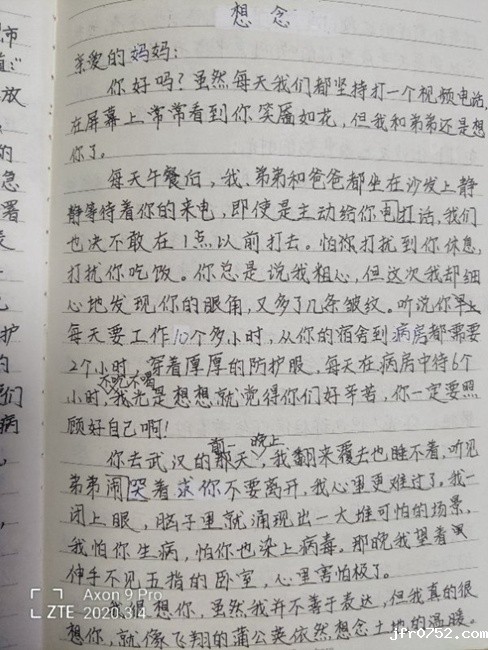 想念
亲爱的妈妈：
你好吗？虽然每天我们都坚持打一个视频电话，
在屏幕上常常看到你笑靥如花，但我和弟弟还是想
你了。
每天午餐后，我、弟弟和爸爸都坐在沙发上静
静等待着你的来电，即使是主动给你电打话，我们
也决不敢在1点以前打去。怕你打扰到你休息，
打扰你吃饭。你总是说我粗心，但这次我却细
心地发现你的眼角，又多了几条皱纹。听说你早上
每天要工作10个多小时，从你的宿舍到病房都需要
2个小时，穿着厚厚的防护服，每天在病房中待6个
不吃不喝
小时，我光是想想就觉得你们好辛苦，你一定要照
顾好自己啊！
前一 晚上
你去武汉的那天，我翻来覆去也睡不着，听见
弟弟闹哭着求你不要离开，我心里更难过了。我一
闭上眼，脑子里就涌现出一大堆可怕的场景，
我怕你生病，怕你也染上病毒。那晚我望着黑
伸手不见五指的卧室，心里害怕极了。
我很想你，虽然我并不善于表达，但我真的很
想你，就像飞翔的蒲公英依然想念土地的温暖。
市
道
放
的
急
署
护
的
们
病
Axon 9 Pro
ZTE 2020.3/4
jfr0752.com